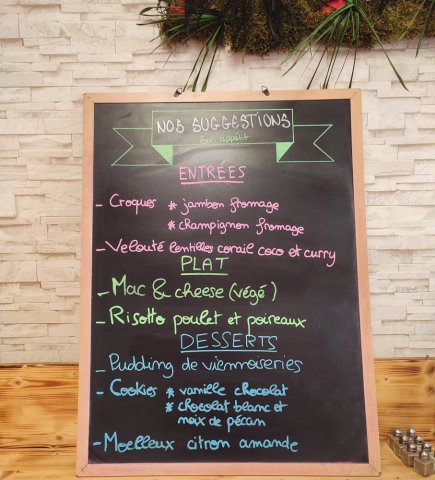 NOS SUGGESTIONS
Bon appétit
ENTRÉES
- Croques * jambon fromage
* champignon fromage
- Velouté lentilles corail coco et curry
PLAT
- Mac & cheese (végé)
- Risotto poulet et poireaux
DESSERTS
- Pudding de viennoiseries
- Cookies * vanille chocolat
* chocolat blanc et
noix de pécan
- Moelleux citron amande